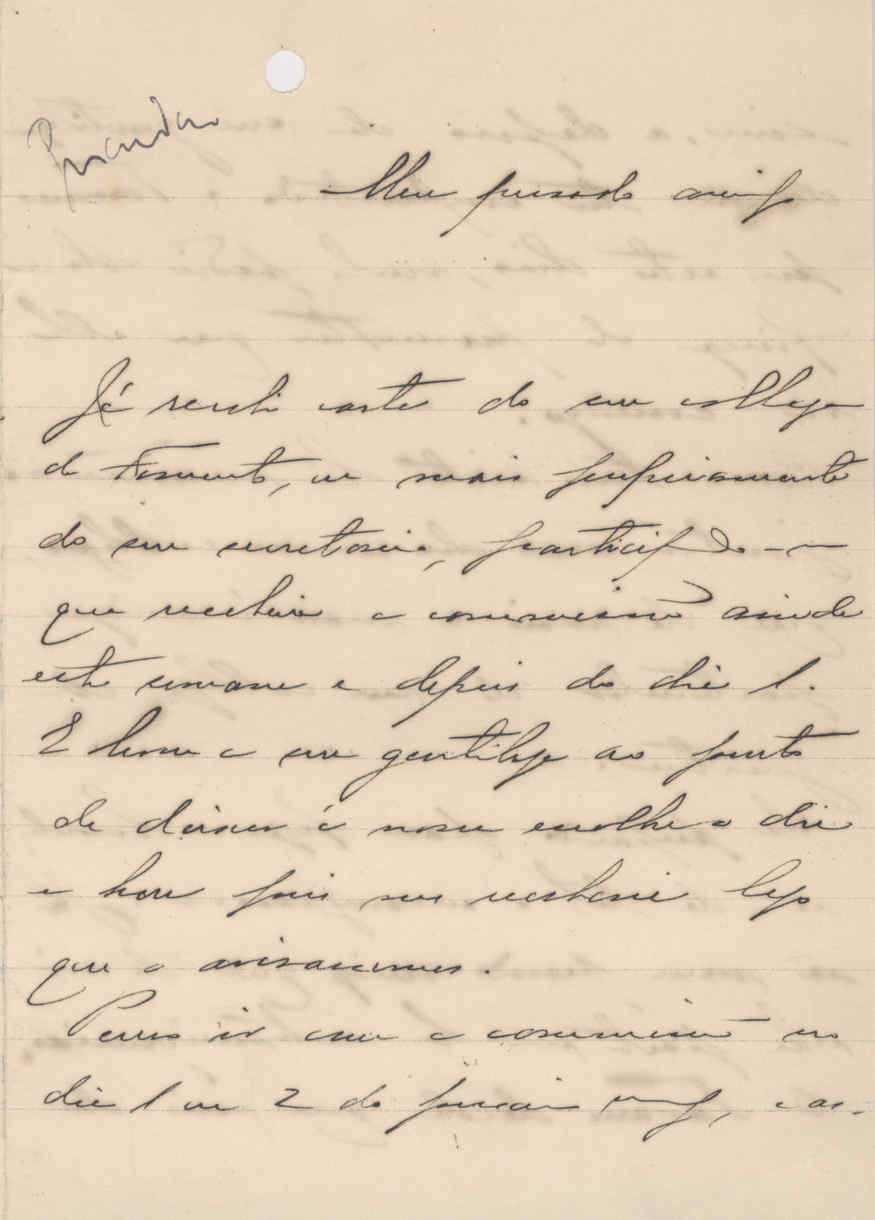 Meu presado amigo
Já recebi carta do seu collega
do Fomento, ou mais propriamente
do seu secretario, participando-me
que receberia a commissão ainda
esta semana e depois do dia 1.
E levou a sua gentileza ao ponto
de deixar á nossa escolha o dia
e hora pois nos receberia logo
que o avisassemos.
Penso ir com a commissão no
dia 1 ou 2 do proximo mez, e as-